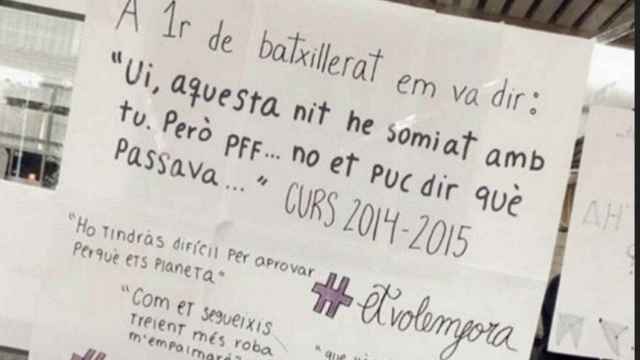 A 1r de batxillerat em va dir:
"Ui, aquesta nit he somiat amb
tu. Però PFF... no et puc dir què
passava..." CURS 2014-2015
"Ho tindràs difícil per aprovar
perquè ets planeta"
#etvolemfora
"Com et segueixis
treient més roba
m'empalmaré"
"que